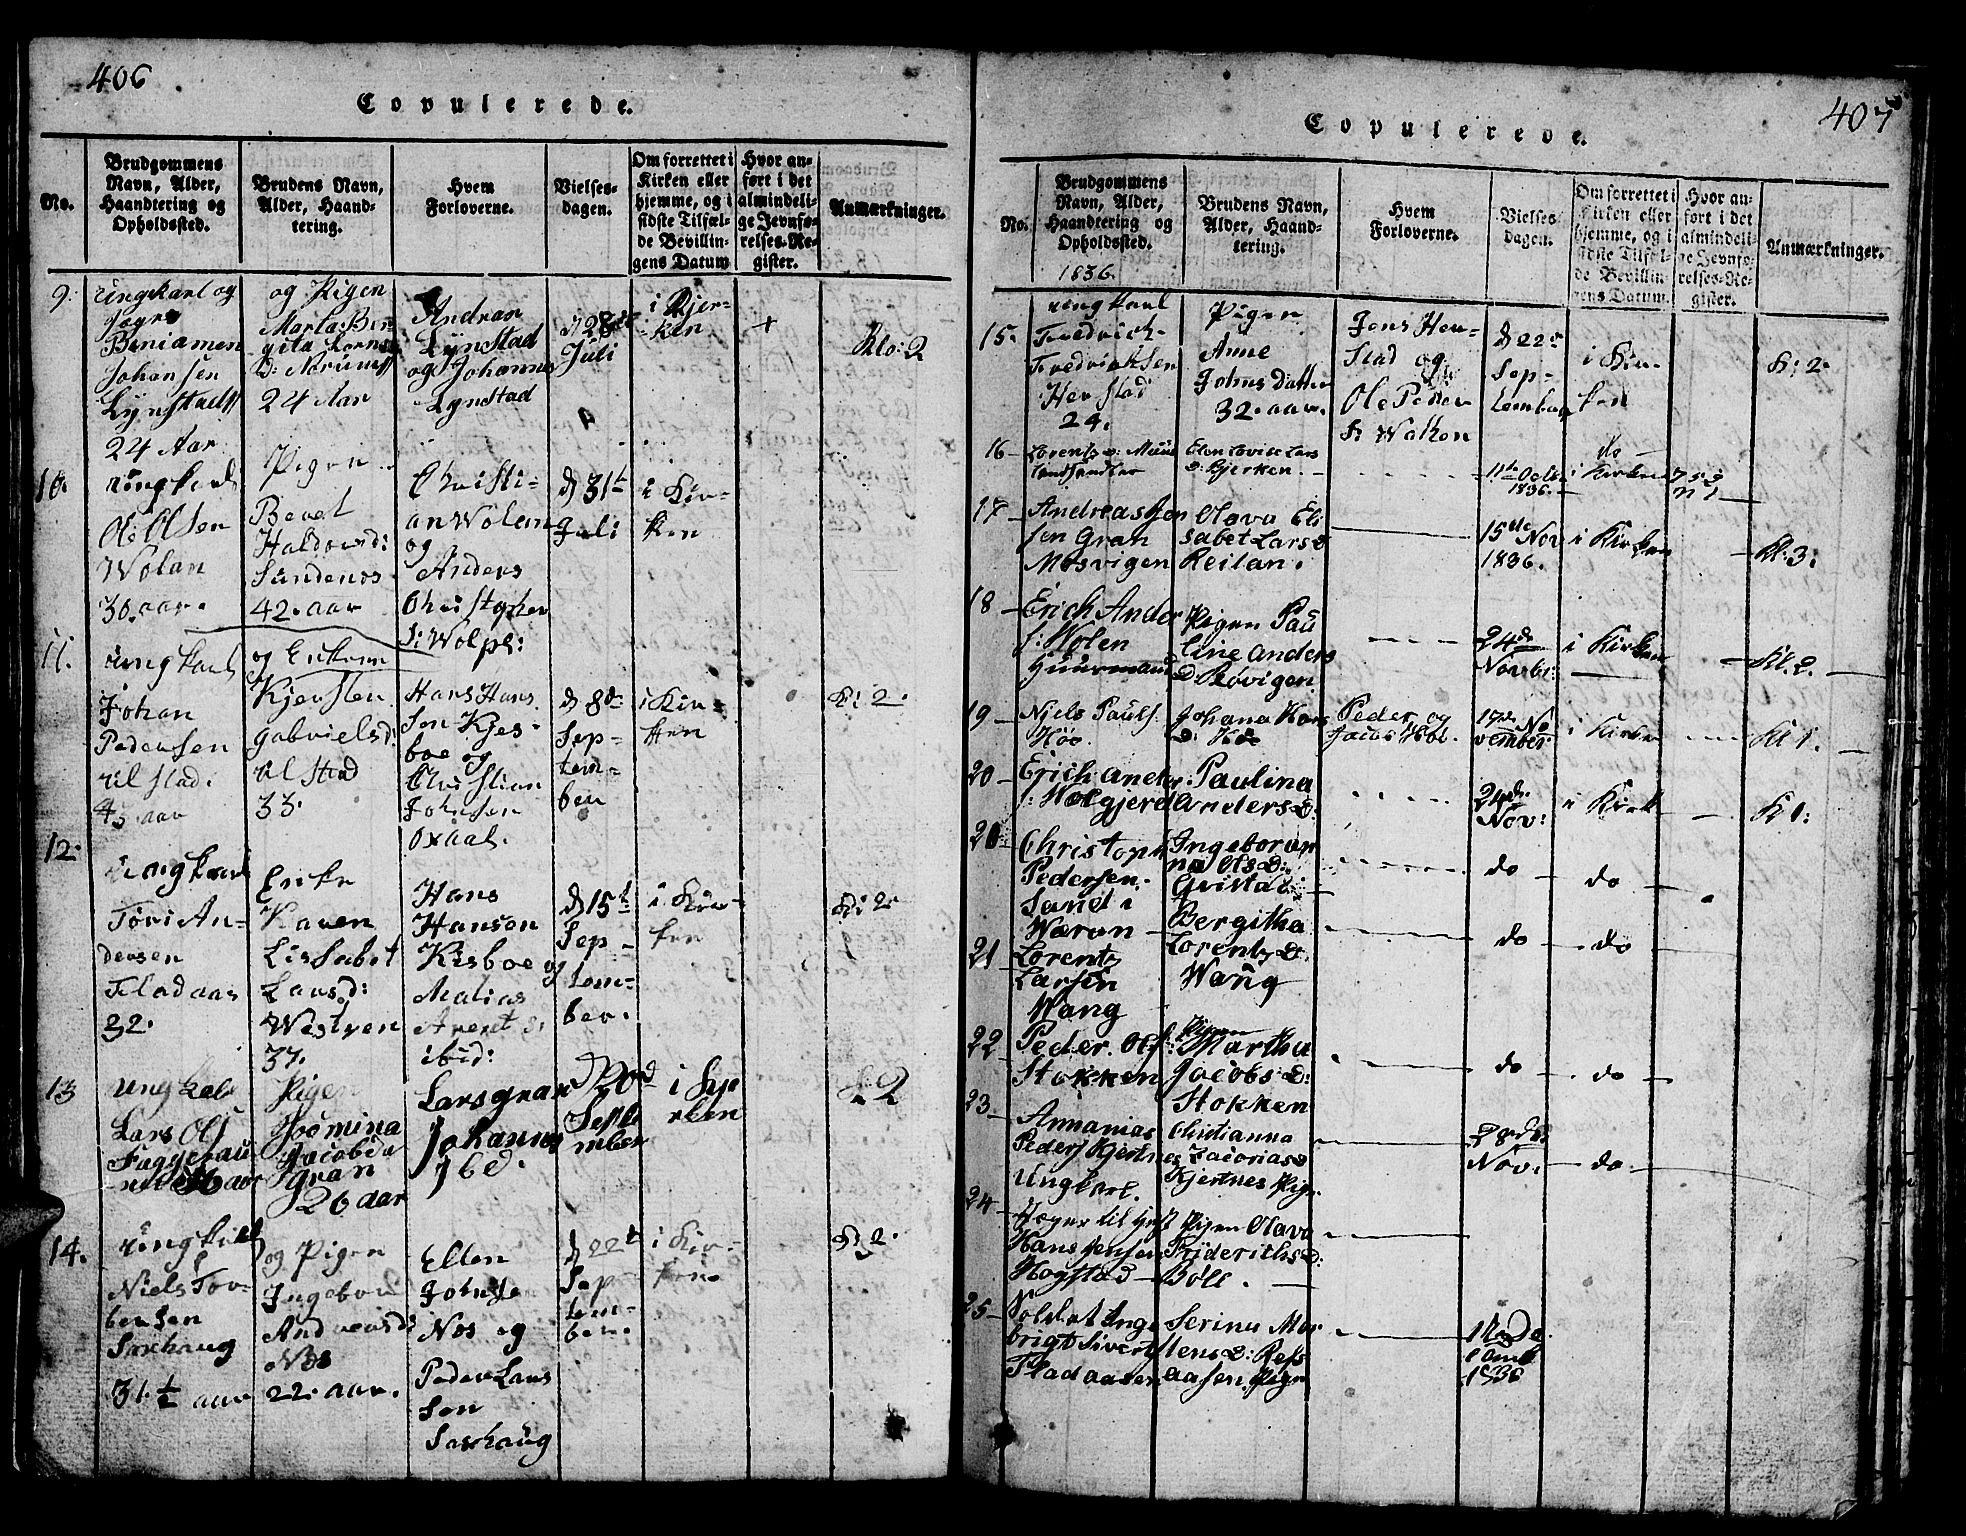 406
Copulerede.
No.
Brudgommens
Navn, Alder,
Haandtering og
Opholdssted.
Brudens Navn,
Alder, Haand-
tering.
Hvem
Forloverne.
Vielses-
dagen.
Om forrettet i
Kirken eller
hjemme, og i
sidste Tilfæl-
de Bevillin-
gens Datum
Hvor an-
ført i det
almindeli-
ge Jevnfø-
relses-Re-
gister.
Anmærkninger.
9.
Ungkarl og
Jegr
Beniamen
Johansen
Lynstad
24 Aar
og Pigen
Marta: Ber
gita Lorns
D: Norum
24 Aar
Andrean
Lynstad
og Johannes
Lynstad
d 28de
Juli
i Kjer-
ken
+
Klo: 2
10.
Ungkarl
Ole Olsen
Wolan
30. aar.
Pigen
Beret
Haldorsd:
Sundenes
42. aar
Christi-
an Wolan
og
Anders
Christopher
S: Wolpl:
d 31t
Juli
i Kir-
ken
11.
Ungkarl
Johan
Pedersen
Ulstad.
45 aar
og Enken
Kjersten
Gabrielsd:
Ulstad
33.
Hans Hans
sen Kjes-
boe og
Christian
Johnsen
Oxaal.
d 8de
Sep-
tem-
ber
i Kir-
ken
K: 2.
12.
Ungkarl
Tore An-
dersen
Fladaas
32.
Enke
Karen
Lissabet
Larsd:
Westren
37.
Hans
Hansen
Kisboe og
Matias
Arent S:
ibid:
d 15t
Sep-
tem-
ber.
i Kir-
ken
K: 2.
13
Ungkarl
Lars Ols
Pigen
Jacobsd
Gran
26 aar
Lars Gran
Johannes
Ibd.
d 20d
Septe
mber
i Kje
rken
K 2
14.
Ungkarl
Niels Tor-
bensen
Saxhaug
31 1/2 aar
og Pigen
Ingebor
Andreasd:
Nøs
22. aar.
Ellen
Johnse
Nøs og
Peder Lars
sen
Saxhaug
d 22t
Sep
tem-
ber.
i Kir-
ken.
K: 2.
407
Copulerede.
No.
Brudgommens
Navn, Alder,
Haandtering og
Opholdssted.
1836.
Brudens Navn,
Alder, Haand-
tering.
Hvem
Forloverne.
Vielses-
dagen.
Om forrettet i
Kirken eller
hjemme, og i
sidste Tilfæl-
de Bevillin-
gens Datum.
Hvor an-
ført i det
almindeli-
ge Jevnfø-
relses-Re-
gister.
Anmærkninger.
15.
Ungkarl
Fredrich
Fredriksen
Herstad
24.
Pigen
Anne
Johns Datter
32. aar.
Jens Her-
stad og
Ole Peder
S: Walken
d 22de
Sep-
tember
i Kir-
ken
K: 2.
16
Lorents
Landhandler
Elen Lovise Lars
D: Gjerken.
11te Octb.
1836.
do
i Kirken
17
Andreas Jen
sen Gran
Mosvigen
Olava Eli
sabet Lars D
Reitan.
15de Nov
1836.
i Kirken
Kl: 3.
18
Erich Ander
s: Wolen
Huusmand
Pigen Pau
line Anders
D: Rovigen
24de
Novbr:
i Kirken
Kl. 2.
19
Niels Pauls.
Høe
Johana Hans
D: Høe
Peder og
Jacob
17de No
vember
i Kirken
Kl 1.
20
Erich Ander
s: Wolgjerd
Paulina
Anders D:
24de
Nov:
i Kirk
K 1:
20
Christoph
Pedersen
Sand i
Wæran
Ingeboran
na Ols D:
do
do
21
Lorents
Larsen
Wang
Bergitha
Lorents D:
Wang
do
do
22
Peder Ols:
Stokken
Pigen
Martha
Jacobs D:
Stokken
do
do
23
Annanias
Peders Kjertnes
Ungkarl.
Christianna
Zacorias D
Kjertnes Pige
28de
Nov.
do
24
Hans Jensen
Hogstad
Pigen Olava
Frideriths D:
Böll.
25
Soldat Inge
brigt Sivert
Fladaasen
Serina Mor
tens D: Ress
aasen. Pigen
1836